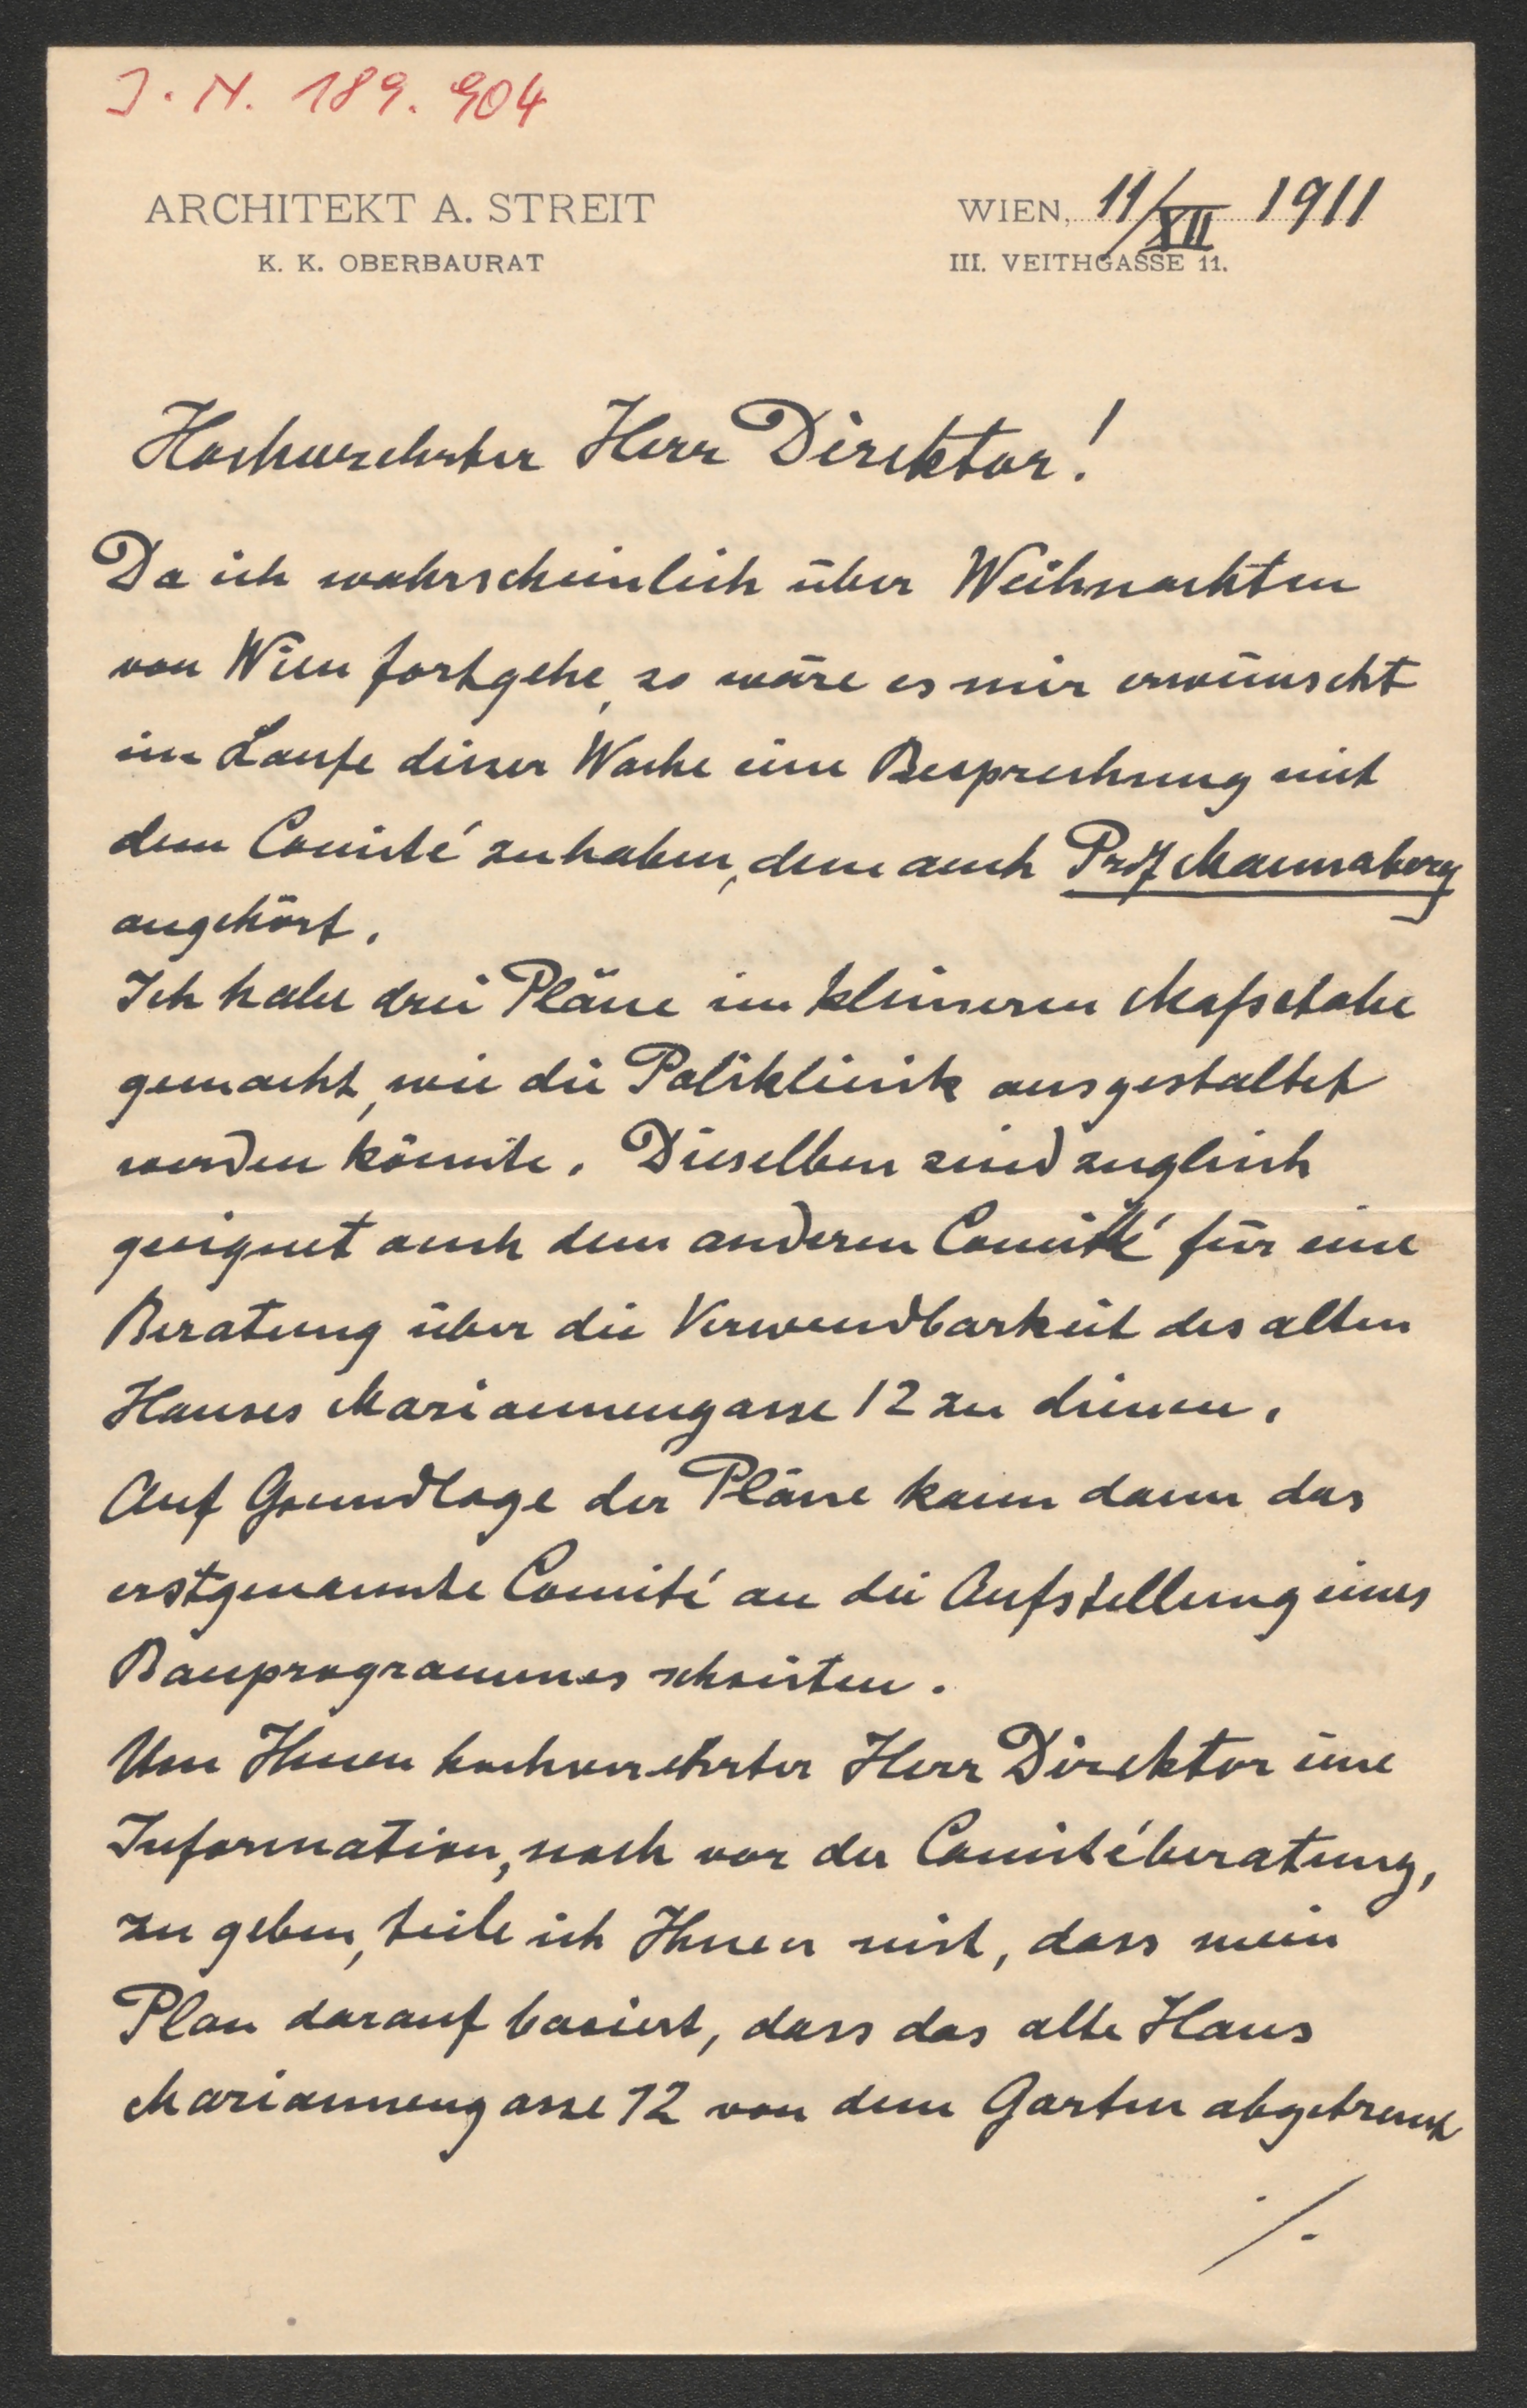 J. N. 189.904
ARCHITEKT A. STREIT
K. K. OBERBAURAT
WIEN, 11/XII 1911
III. VEITHGASSE 11.
Hochverehrter Herr Direktor!
Da ich wahrscheinlich über Weihnachten
von Wien fortgehe, so wäre es mir erwünscht
im Laufe dieser Woche eine Besprechung mit
dem Comité zu haben, dem auch Prof Mannaberg
angehört.
Ich habe drei Pläne im kleineren Maßstabe
gemacht, wie die Poliklinik ausgestaltet
werden könnte. Dieselben sind zugleich
geeignet auch dem anderen Comité für eine
Beratung über die Verwendbarkeit des alten
Hauses Mariannengasse 12 zu dienen.
Auf Grundlage der Pläne kann dann das
erstgenannte Comité an die Aufstellung eines
Bauprogrammes schreiten.
Um Ihnen hochverehrter Herr Direktor eine
Information, noch vor der Comitéberatung,
zu geben, teile ich Ihnen mit, dass mein
Plan darauf basiert, dass das alte Haus
Mariannengasse 12 von dem Garten abgetrennt
./.